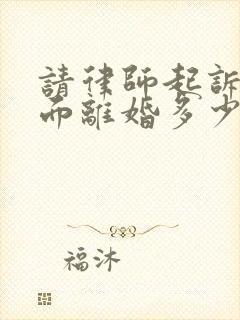 請律師起訴
而離婚多少
福沐